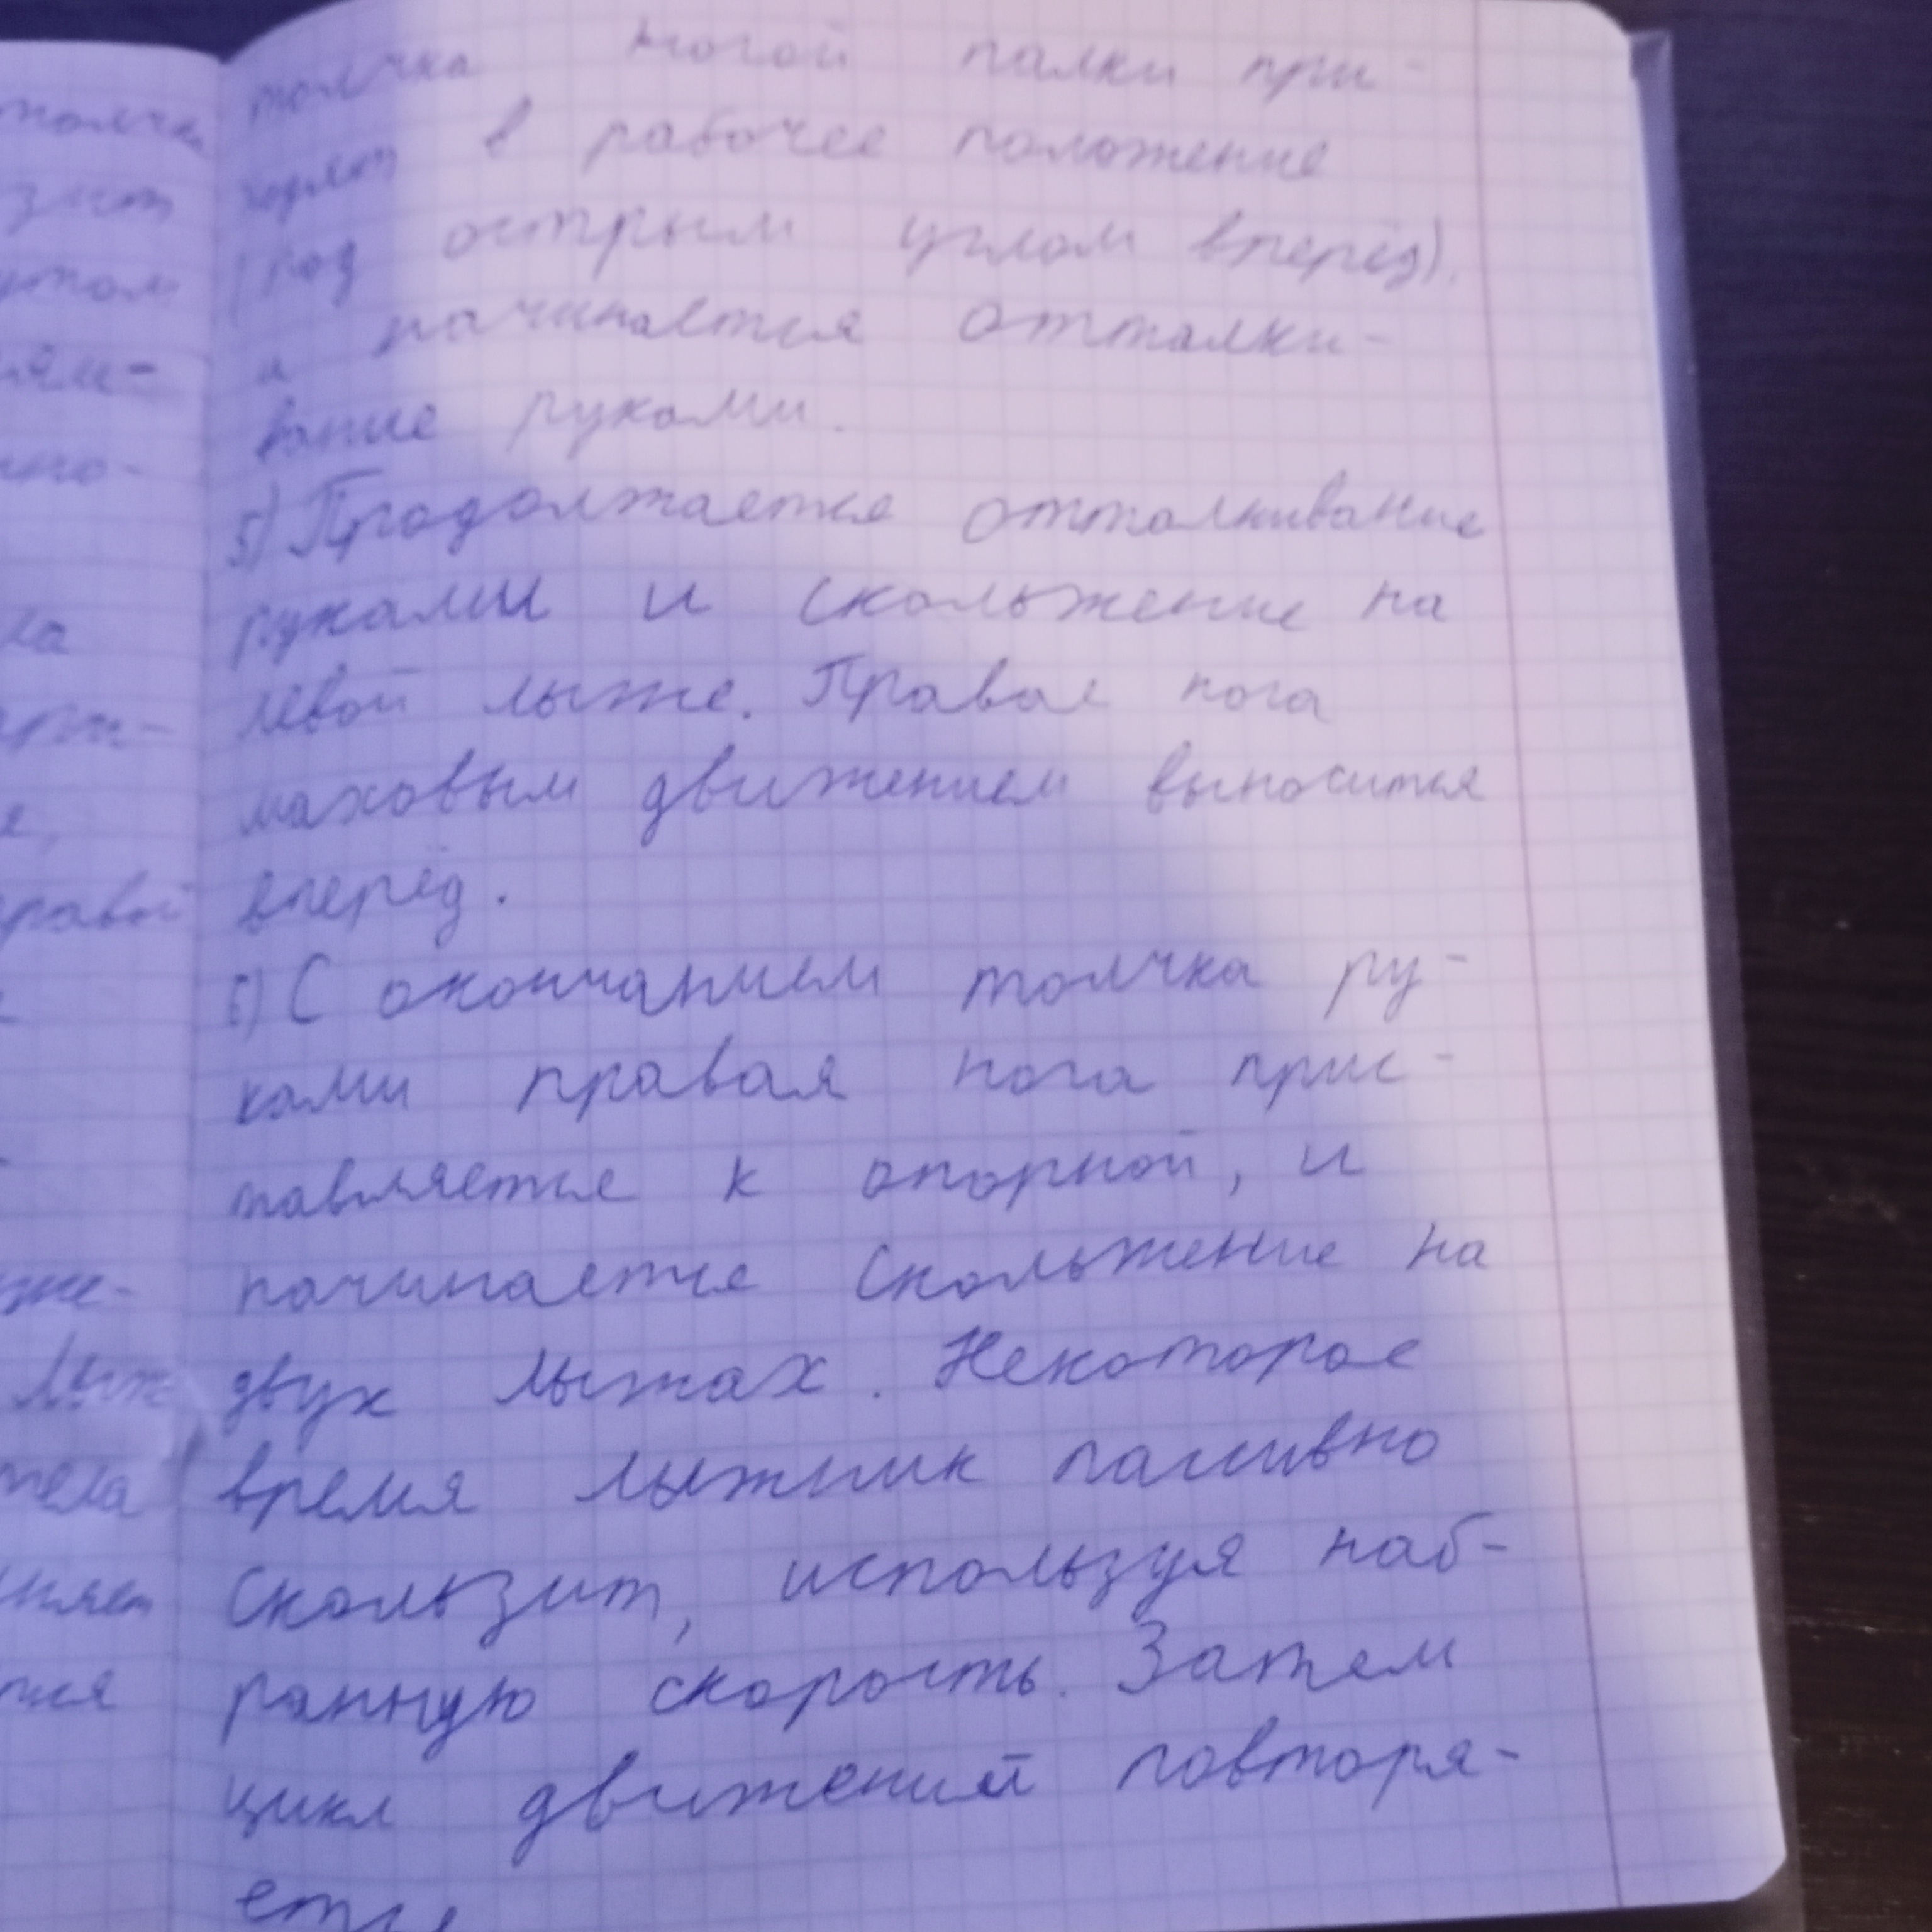 толчка ногой палки при-
ходят в рабочее положение
(под острым углом вперёд),
и начинается отталки-
вание руками.
5) Продолжается отталкивание
руками и скольжение на
левой лыже. Правая нога
маховым движением выносится
вперёд.
6) С окончанием толчка ру-
ками правая нога прис-
тавляется к опорной, и
начинается скольжение на
двух лыжах. Некоторое
время лыжник пассивно
скользит, используя наб-
ранную скорость. Затем
цикл движений повторя-
ется